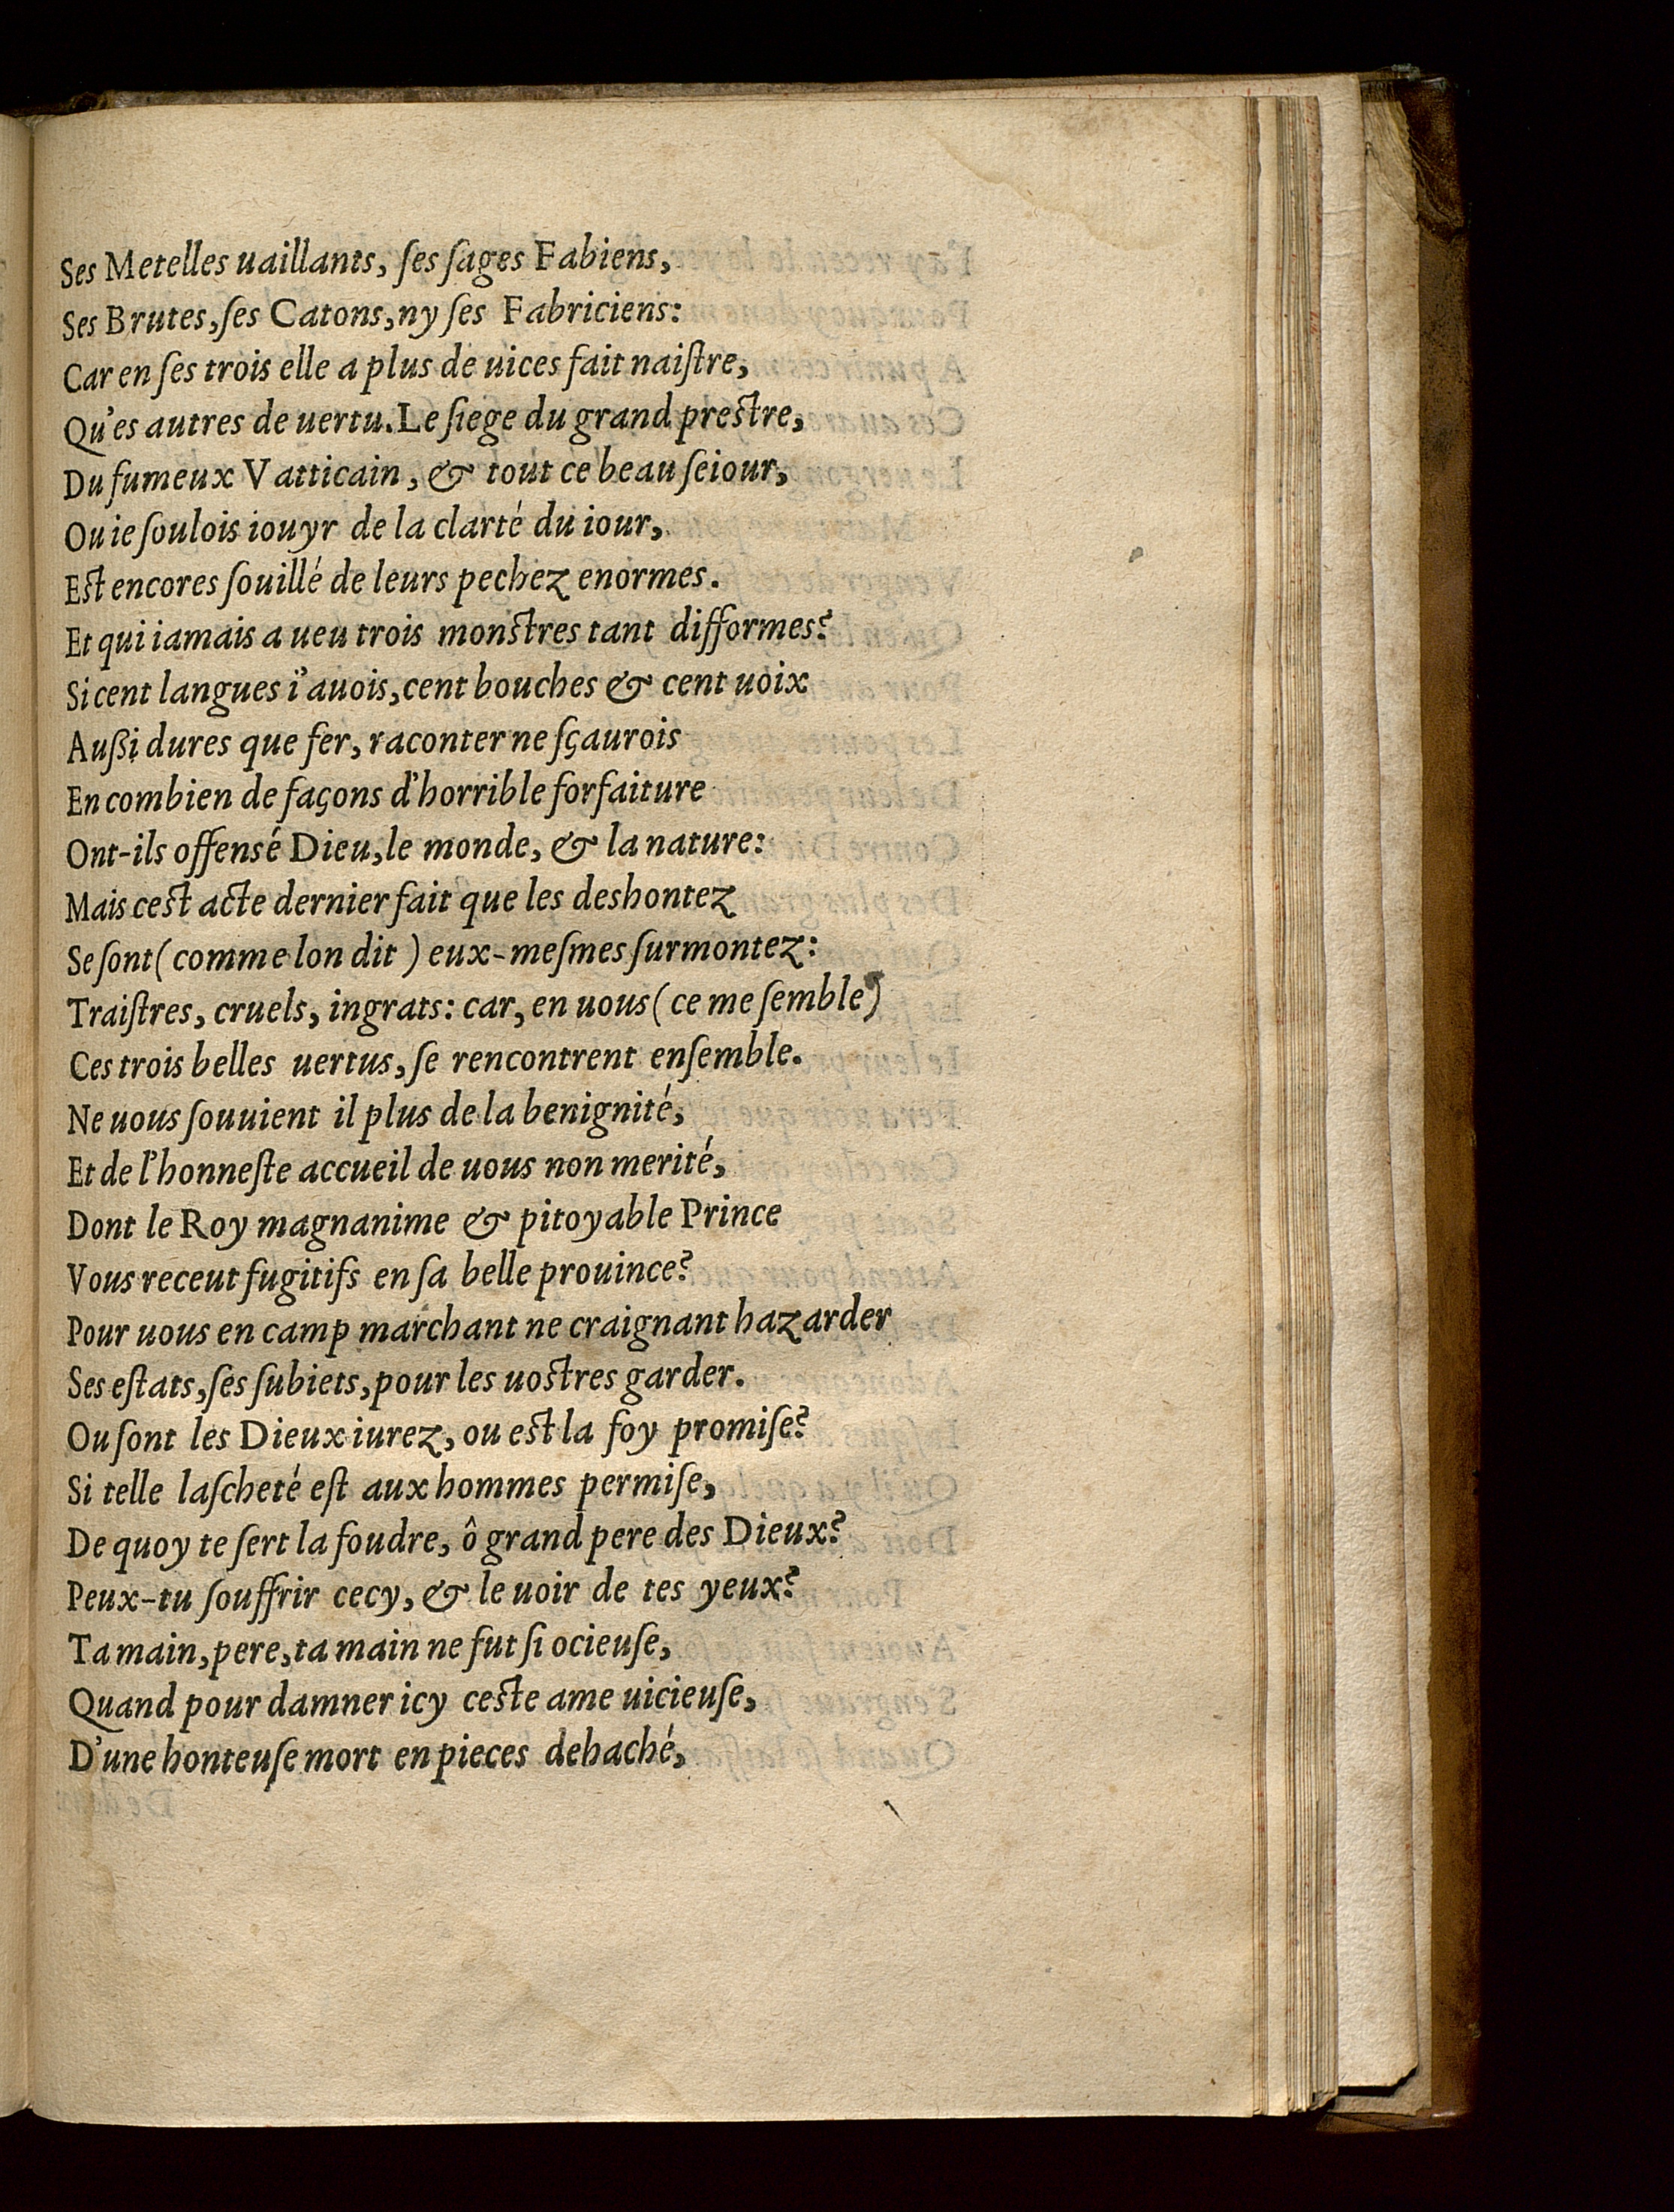 Ses Metelles uaillants, ſes ſages Fabiens,
Ses Brutes, ſes Catons, ny ſes Fabriciens:
Car en ſes trois elle a plus de uices fait naiſtre,
Qu'es autres de uertu. Le ſiege du grand preſtre,
Du fumeux Vatticain, & tout ce beau ſeiour,
Ou ie ſoulois iouyr de la clarté du iour,
Eſt encores ſouillé de leurs pechez enormes.
Et qui iamais a ueu trois monſtres tant difformes?
Si cent langues i'auois, cent bouches & cent uoix
Außi dures que fer, raconter ne ſçaurois
En combien de façons d'horrible forfaiture
Ont-ils offensé Dieu, le monde, & la nature:
Mais ceſt acte dernier fait que les deshontez
Se ſont (comme lon dit) eux-meſmes ſurmontez:
Traiſtres, cruels, ingrats: car, en uous (ce me ſemble)
Ces trois belles uertus, ſe rencontrent enſemble.
Ne uous ſouuient il plus de la benignité,
Et de l'honneſte accueil de uous non merité,
Dont le Roy magnanime & pitoyable Prince
Vous receut fugitifs en ſa belle prouince?
Pour uous en camp marchant ne craignant hazarder
Ses eſtats, ſes ſubiets, pour les uoſtres garder.
Ou ſont les Dieux iurez, ou eſt la foy promiſe?
Si telle laſcheté eſt aux hommes permiſe,
De quoy te ſert la foudre, ô grand pere des Dieux?
Peux-tu ſouffrir cecy, & le uoir de tes yeux?
Ta main, pere, ta main ne fut ſi ocieuſe,
Quand pour damner icy ceſte ame uicieuſe,
D'une honteuſe mort en pieces dehaché,